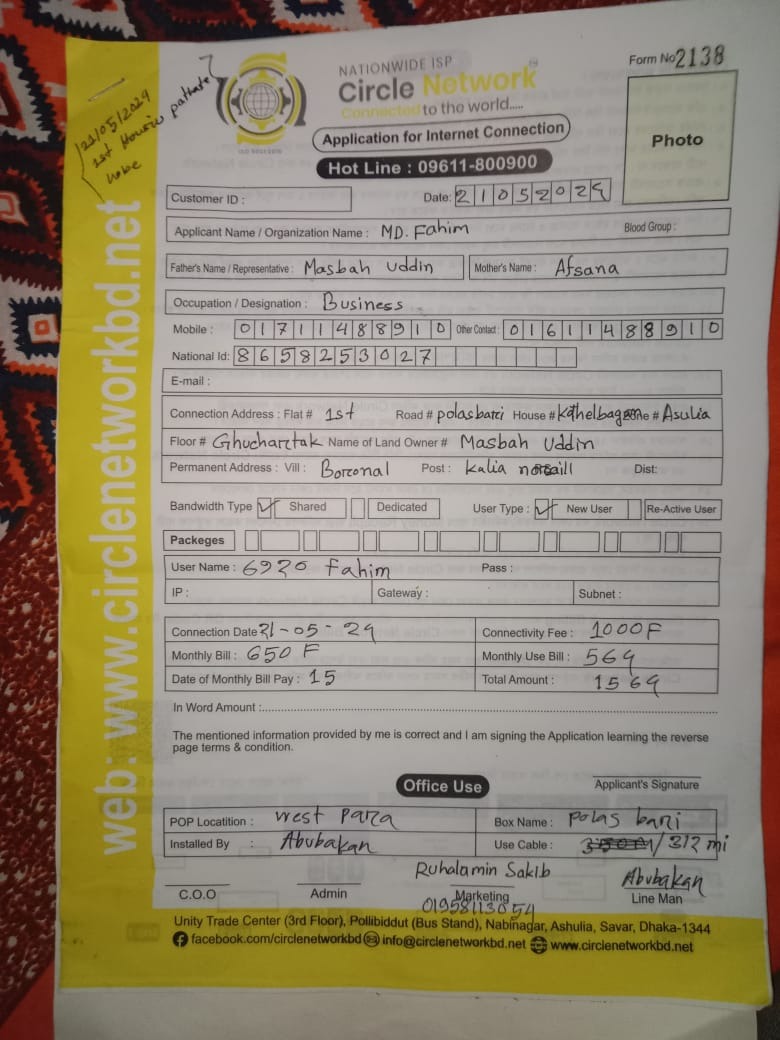 21/05/2024
1st Housiv pathate
hobe
NATIONWIDE ISP
Circle Network
Connected to the world.....
ISO 9001:2015
Application for Internet Connection
Hot Line : 09611-800900
Form No 2138
Photo
Customer ID :
Date: 21052024
Applicant Name / Organization Name : MD. Fahim Blood Group :
Father's Name / Representative : Masbah Uddin Mother's Name : Afsana
Occupation / Designation : Business
Mobile : 01711488910 Other Contact : 01611488910
National Id: 8658253027
E-mail :
Connection Address : Flat # 1st Road # polasbari House # Kathelbagan # Asulia
Floor # Ghughartak Name of Land Owner # Masbah Uddin
Permanent Address : Vill : Borconal Post : Kalia noraill Dist:
Bandwidth Type Shared Dedicated User Type : New User Re-Active User
Packeges
User Name : 6920 Fahim Pass :
IP : Gateway : Subnet :
Connection Date 21-05-24 Connectivity Fee : 1000F
Monthly Bill : 650 F Monthly Use Bill : 564
Date of Monthly Bill Pay : 15 Total Amount : 1564
In Word Amount :
The mentioned information provided by me is correct and I am signing the Application learning the reverse
page terms & condition.
Office Use
Applicant's Signature
POP Locatition : West Para Box Name : Polas bari
Installed By : Abubakan Use Cable : 312 mi
Ruhalamin Sakib Abubakan
C.O.O Admin Marketing Line Man
01958113054
Unity Trade Center (3rd Floor), Pollibiddut (Bus Stand), Nabinagar, Ashulia, Savar, Dhaka-1344
facebook.com/circlenetworkbd info@circlenetworkbd.net www.circlenetworkbd.net
web: www.circlenetworkbd.net